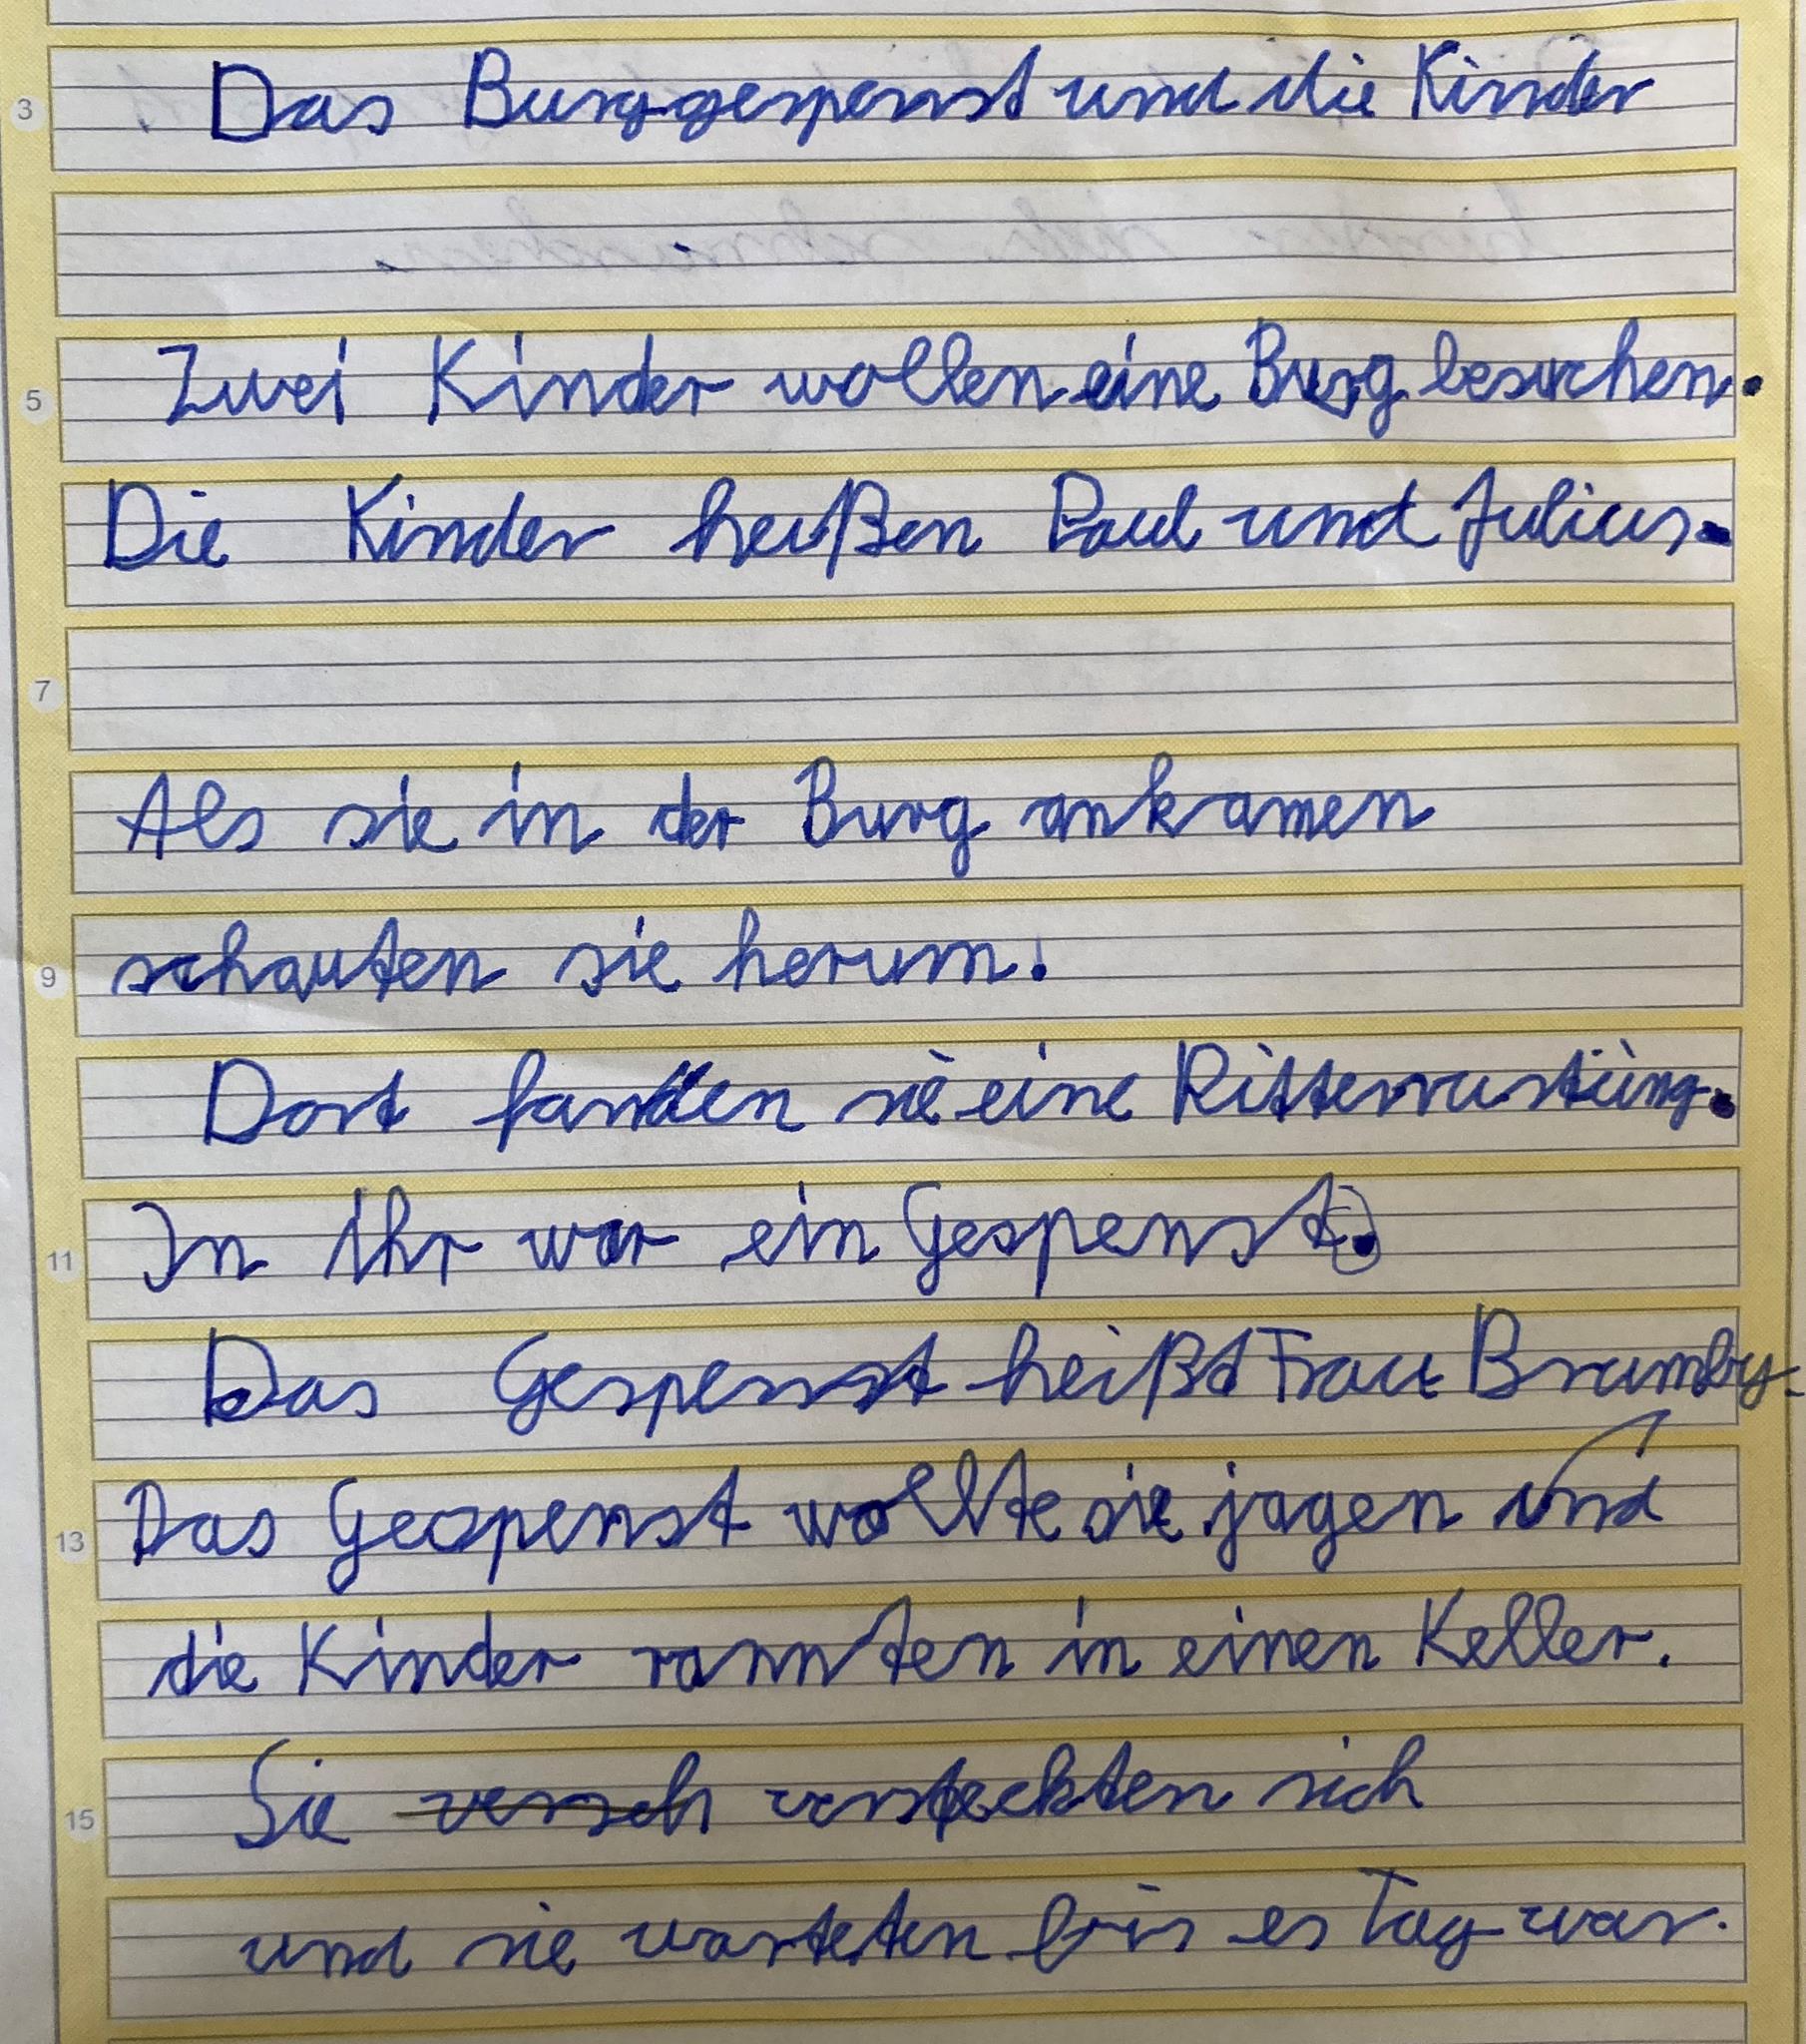 3 Das Burggespenst und die Kinder
5 Zwei Kinder wollen eine Burg besuchen.
Die Kinder heißen Paul und Julius.
7
Als sie in der Burg ankamen
9 schauten sie herum.
Dort fanden sie eine Ritterrustüng.
11 In ihr war ein Gespenst.
Das Gespenst heißt Frau Brumby.
13 Das Gespenst wollte sie jagen und
die Kinder rannten in einen Keller.
15 Sie versch versteckten sich
und sie warteten bis es Tag war.